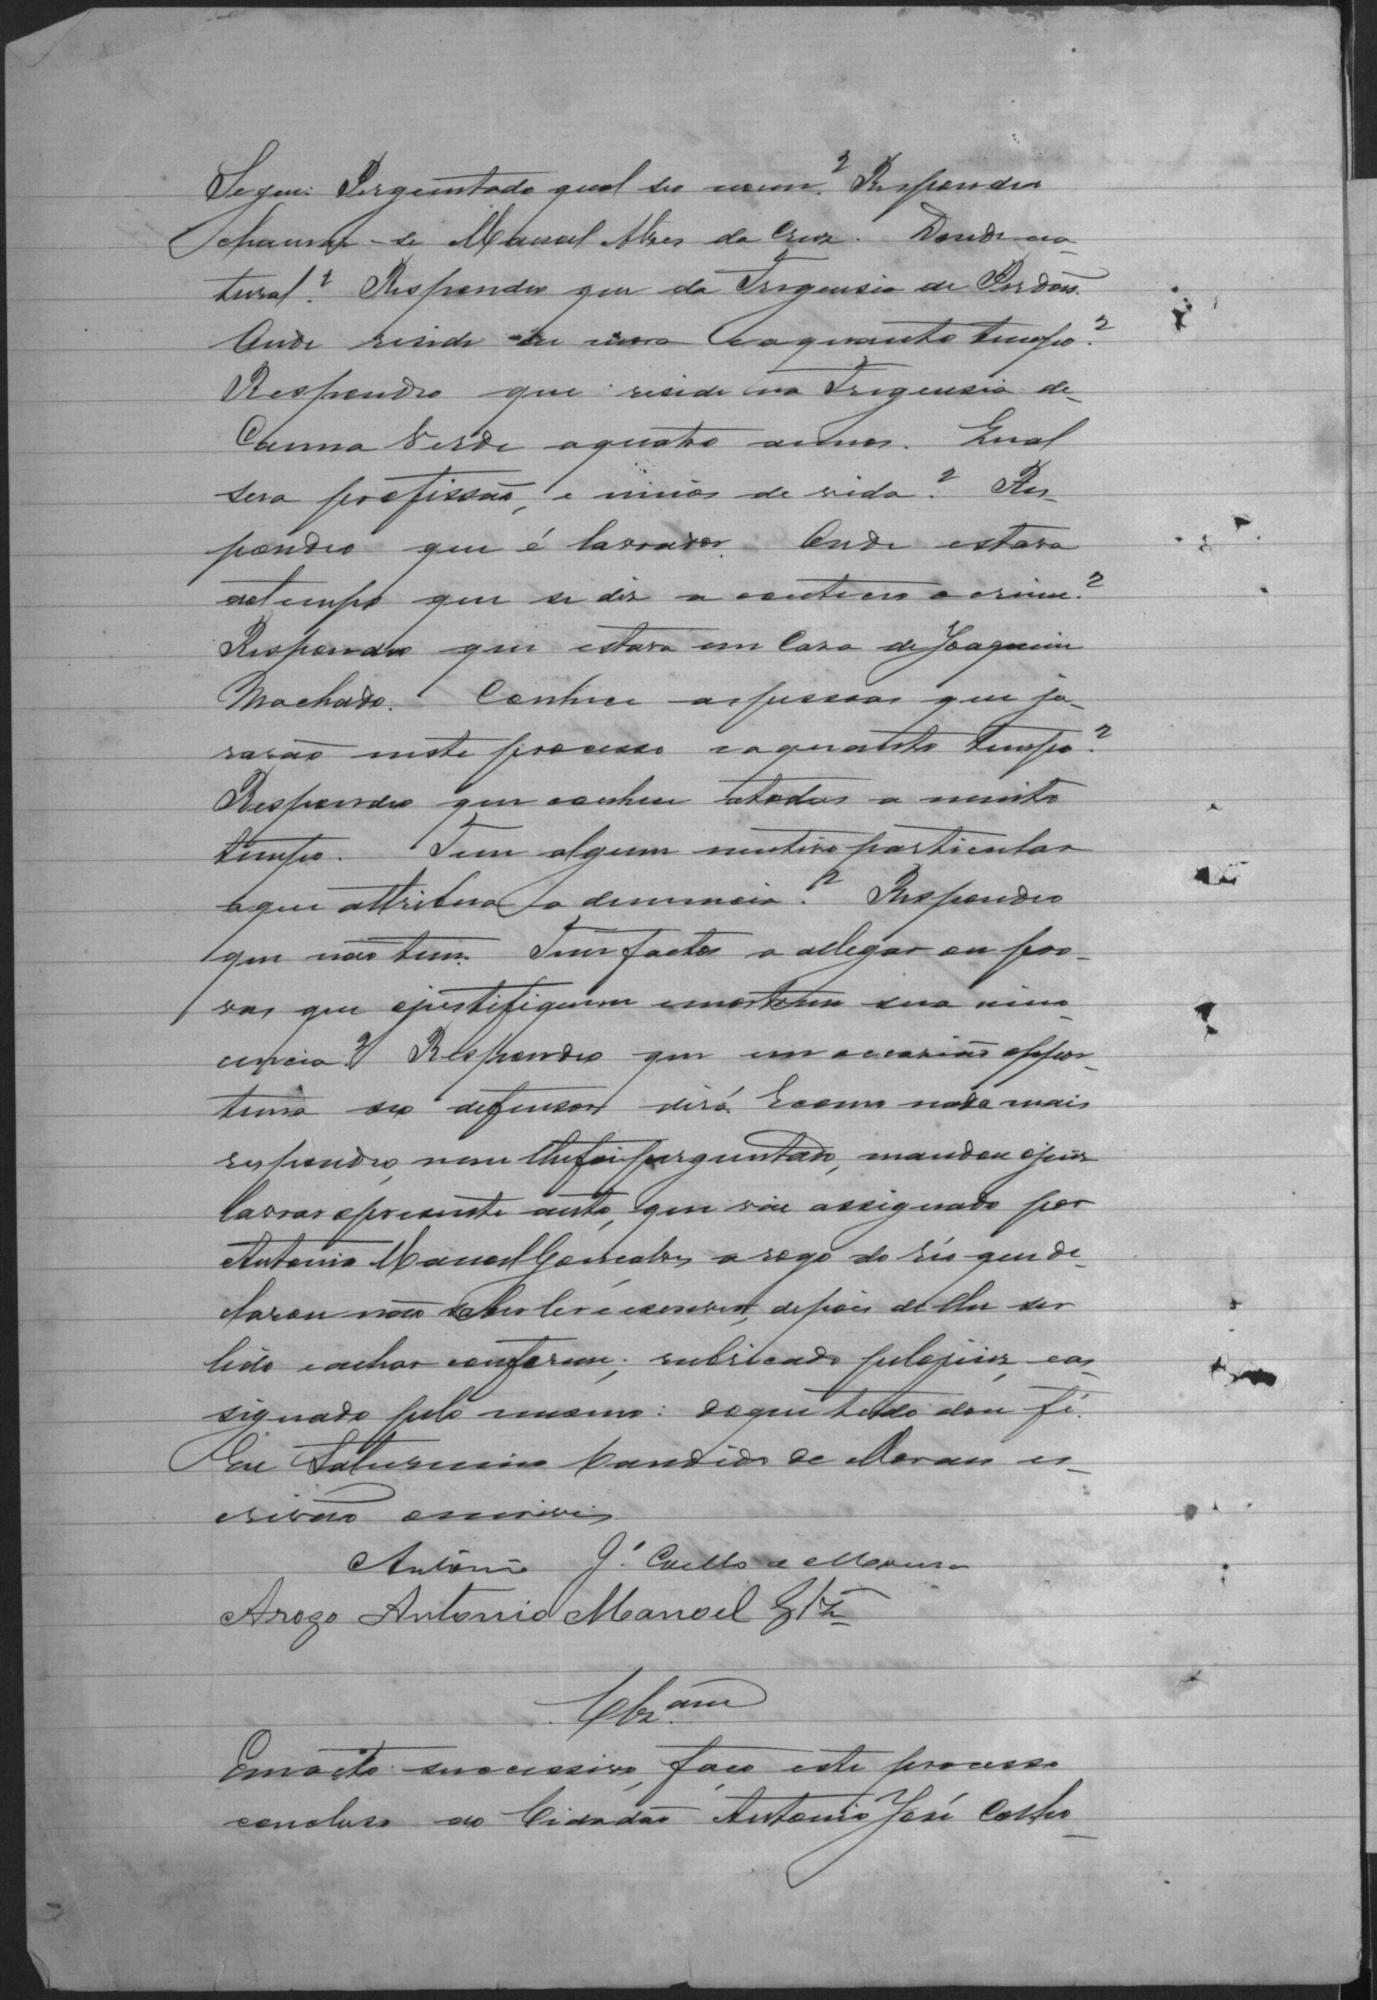 Segue: Perguntado qual seo nome? Respondeo
chamar-se Manoel Alves da Cruz. Donde na-
tural? Respondeo que da Freguesia de Perdões.
Onde reside ou mora e aquanto tempo?
Respondeo que reside na Freguesia de
Canna Verde aquatro annos. Qual
sera profissão, e meios de vida? Res-
pondeo que é lavrador. Onde estava
aotempo que se diz a conteceo o crime?
Respondeo que estava em Casa de Joaquim
Machado. Conhece aspessoas que ju-
rarão neste processo e aquanto tempo?
Respondeo que conhece atodas a muito
tempo. Tem algum motivo particular
aque attribua a denuncia? Respondeo
que não tem. Tem factos a allegar ou pro-
vas que ojustifiquem e mostrem sua inno-
cencia? Respondeo que em occasião oppor-
tuna seo defensor dirá. E como nada mais
respondeo, nem lhe foi perguntado, mandou o juiz
lavrar opresente auto, que vae assignado por
Antonio Manoel Gonçalves a rogo do réo que de-
clarou não saber ler e escrever, depois de lhe ser
lido e achar conforme; rubricado pelo juiz, e as-
signado pelo mesmo: doque tudo dou fé.
Eu Saturnino Candido de Moraes es-
crivão escrevi
Antonio J.e Coelho de Moura
Arogo Antonio Manoel Glz
Clz.am
Em acto successivo, faço este processo
concluso ao Cidadão Antonio José Coelho